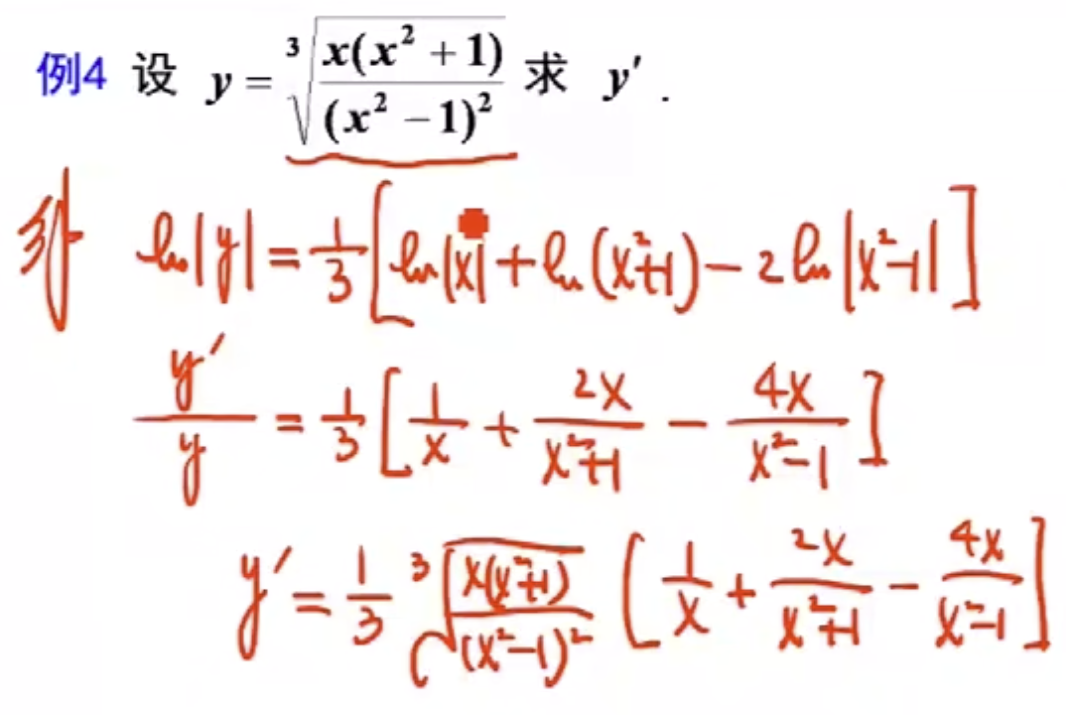 例4 设 y = ∛(x(x² + 1)/(x² − 1)²) 求 y′ .
解 ln|y| = 1/3 [ln|x| + ln(x²+1) − 2ln|x²−1|]
y′/y = 1/3 [1/x + 2x/(x²+1) − 4x/(x²−1)]
y′ = 1/3 ∛(x(x²+1)/(x²−1)²) [1/x + 2x/(x²+1) − 4x/(x²−1)]